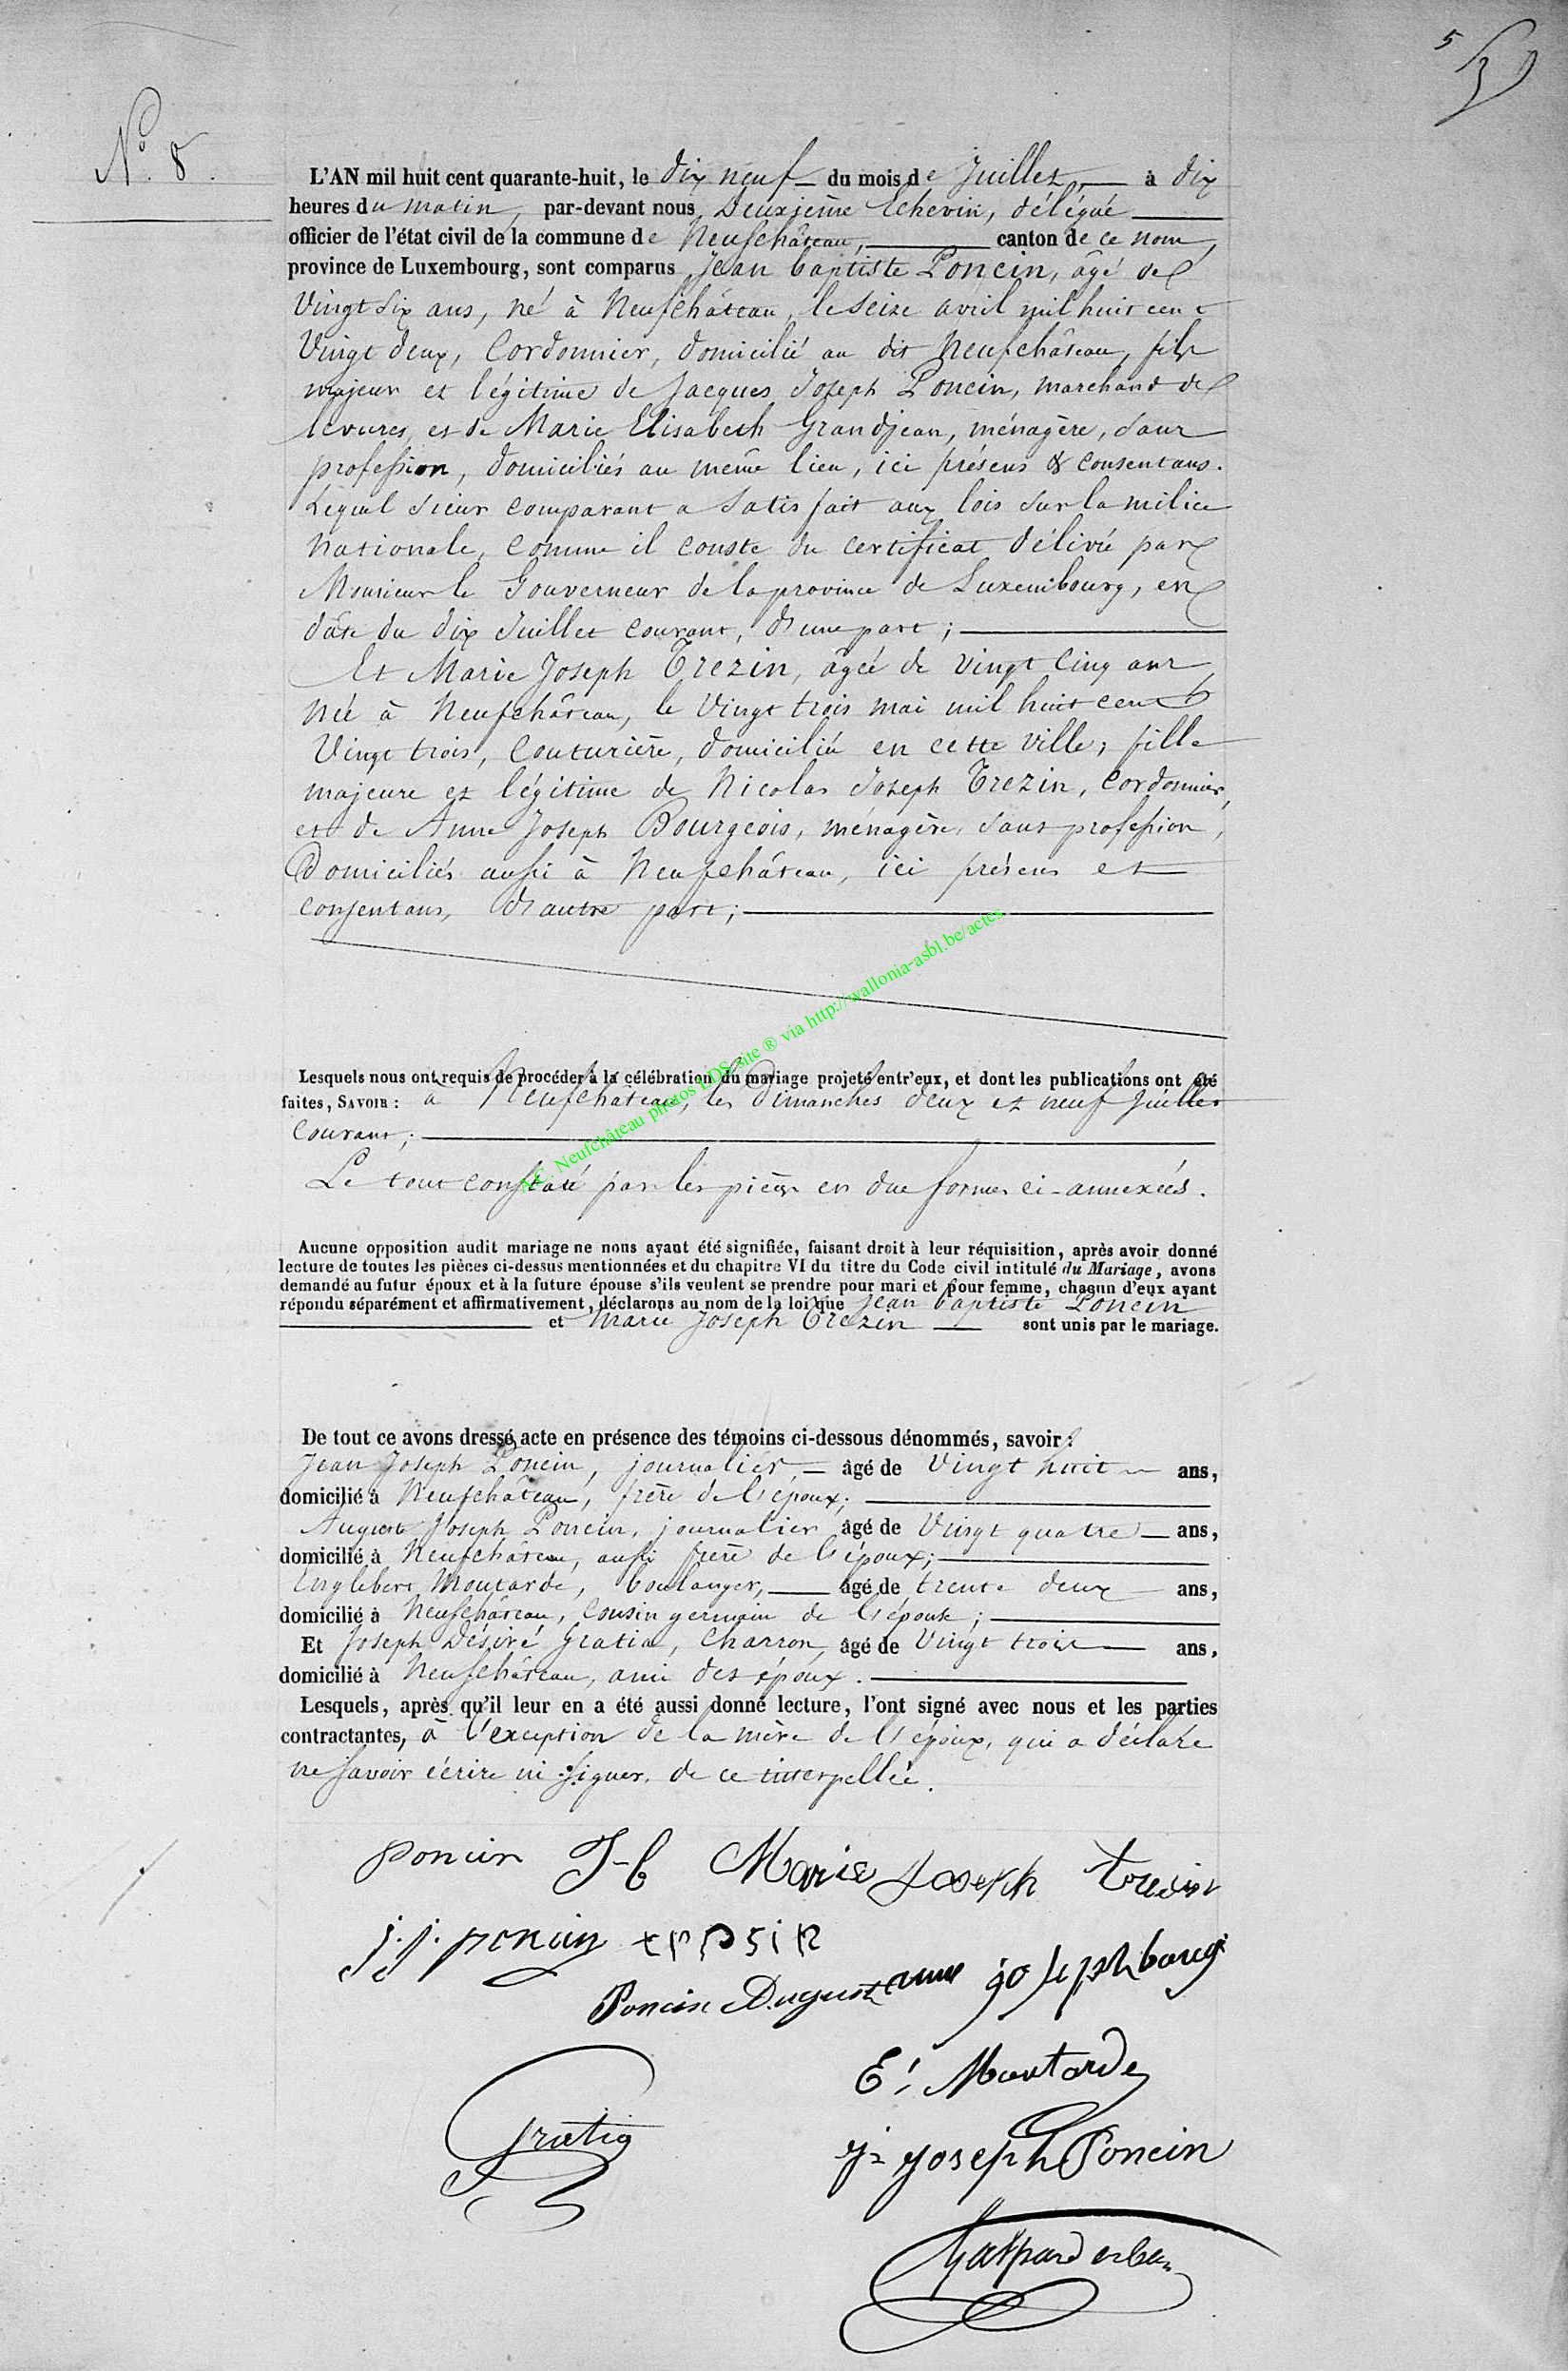 5
N.º 8.
L'AN mil huit cent quarante-huit, le dix neuf du mois de Juillet, à dix
heures du matin, par-devant nous Deuxième Echevin, délégué
officier de l'état civil de la commune de Neufchâteau, canton de ce nom,
province de Luxembourg, sont comparus Jean baptiste Poncin, âgé de
Vingt Six ans, né à Neufchâteau, le seize avril mil huit cent
Vingt deux, Cordonnier, domicilié au dit Neufchâteau, fils
majeur et légitime de Jacques Joseph Poncin, marchand de
levures, et de Marie Elisabeth Grandjean, ménagère, sans
profession, domiciliés au même lieu, ici présens & consentans.
Lequel sieur comparant a satisfait aux lois sur la milice
Nationale, comme il conste du certificat délivré par
Monsieur le Gouverneur de la province de Luxembourg, en
date du dix Juillet courant, d'une part;
Et Marie Joseph Trezin, âgée de vingt cinq ans
née à Neufchâteau, le vingt trois mai mil huit cent
Vingt trois, Couturière, domiciliée en cette ville, fille
majeure et légitime de Nicolas Joseph Trezin, cordonnier,
et de Anne Joseph Bourgeois, ménagère, sans profession,
Domiciliés aussi à Neufchâteau, ici présens et
consentans, d'autre part;
AC. Neufchâteau photos LDS site ® via http://wallonia-asbl.be/actes
Lesquels nous ont requis de procéder à la célébration du mariage projeté entr'eux, et dont les publications ont été
faites, SAVOIR : à Neufchâteau, les Dimanches deux et neuf Juillet
Courant;
Le tout constaté par les pièces en due forme ci-annexées.
Aucune opposition audit mariage ne nous ayant été signifiée, faisant droit à leur réquisition, après avoir donné
lecture de toutes les pièces ci-dessus mentionnées et du chapitre VI du titre du Code civil intitulé du Mariage, avons
demandé au futur époux et à la future épouse s'ils veulent se prendre pour mari et pour femme, chacun d'eux ayant
répondu séparément et affirmativement, déclarons au nom de la loi que Jean baptiste Poncin
et Marie Joseph Trezin sont unis par le mariage.
De tout ce avons dressé acte en présence des témoins ci-dessous dénommés, savoir :
Jean Joseph Poncin, journalier, âgé de Vingt huit ans,
domicilié à Neufchâteau, frère de l'époux;
Auguste Joseph Poncin, journalier âgé de Vingt quatre ans,
domicilié à Neufchâteau, aussi frère de l'époux;
Englebert Moutarde, boulanger, âgé de trente deux ans,
domicilié à Neufchâteau, Cousin germain de l'épouse;
Et Joseph Désiré Gratia, Charron, âgé de Vingt trois ans,
domicilié à Neufchâteau, ami des époux.
Lesquels, après qu'il leur en a été aussi donné lecture, l'ont signé avec nous et les parties
contractantes, à l'exception de la mère de l'époux, qui a déclaré
ne savoir écrire ni signer, de ce interpellée.
poncin J-b Marie Joseph trezin
j. j. poncin
Poncin August anne joseph bourg
E! Moutarde
Gratia
j= joseph Poncin
Gaspard